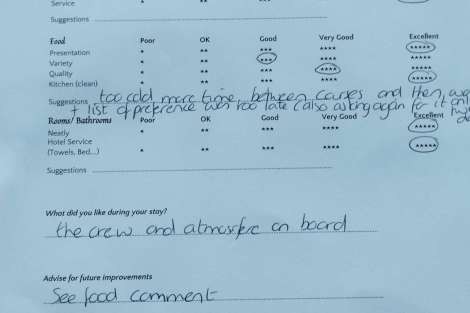 Service * ** ***
Suggestions
Food Poor OK Good Very Good Excellent
Presentation * ** *** **** *****
Variety * ** *** **** *****
Quality * ** *** **** *****
Kitchen (clean) * ** *** **** *****
Suggestions too cold, more time between courses and then, was
+ list of preference was too late (also asking again for it only
Rooms/ Bathrooms Poor OK Good Very Good Excellent
Neatly * ** *** **** *****
Hotel Service
(Towels, Bed...) * ** *** **** *****
Suggestions
What did you like during your stay?
the crew and atmosfere on board
Advise for future improvements
See food comment